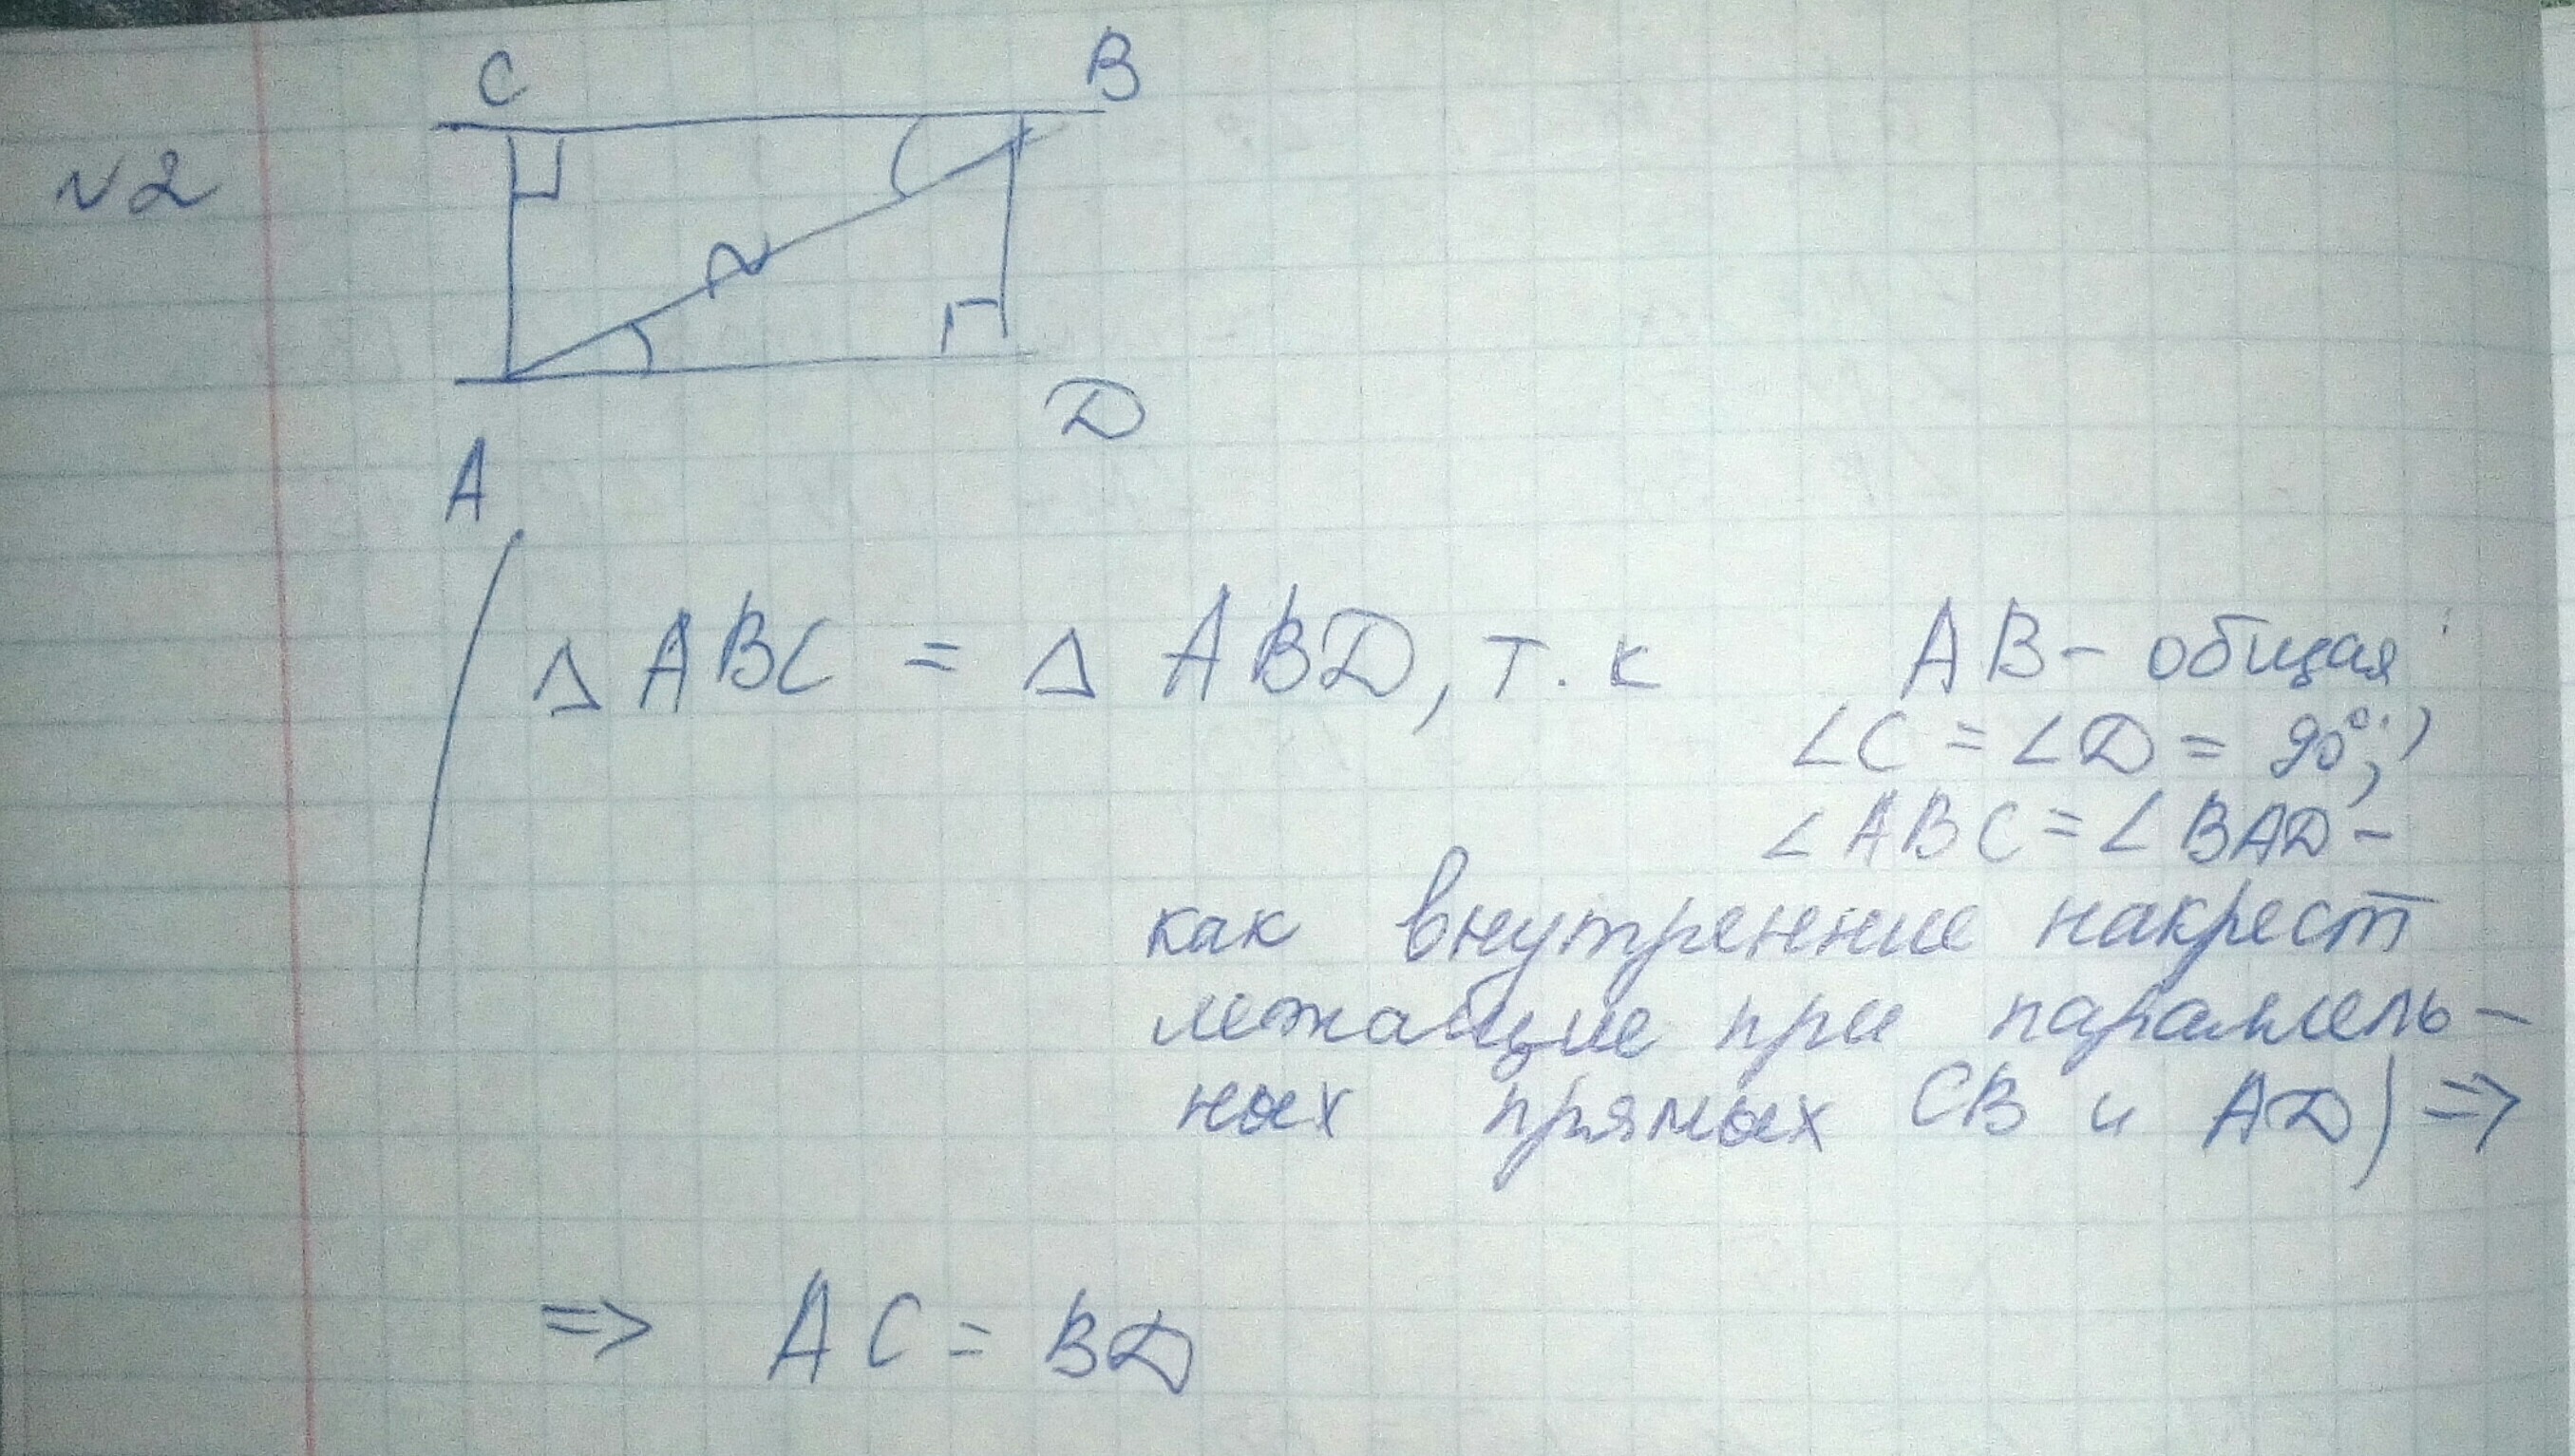 C B
№2
A D
Δ ABC = Δ ABD, т.к AB - общая
∠C = ∠D = 90°;
∠ABC = ∠BAD -
как внутренние накрест
лежащие при параллель-
ных прямых CB и AD) =>
=> AC = BD